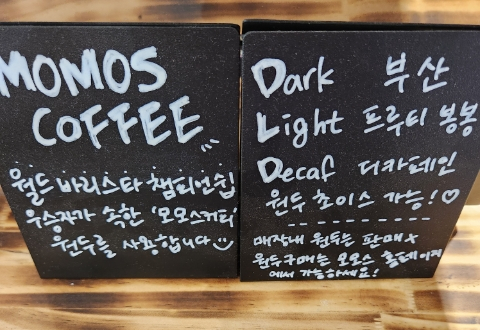 MOMOS
COFFEE
월드 바리스타 챔피언쉽
우승자가 속한 '모모스커피'
원두를 사용합니다
Dark 부산
Light 프루티 봉봉
Decaf 디카페인
원두 초이스 가능!♡
매장내 원두는 판매x
원두구매는 모모스 홈페이지
에서 가능하세요!